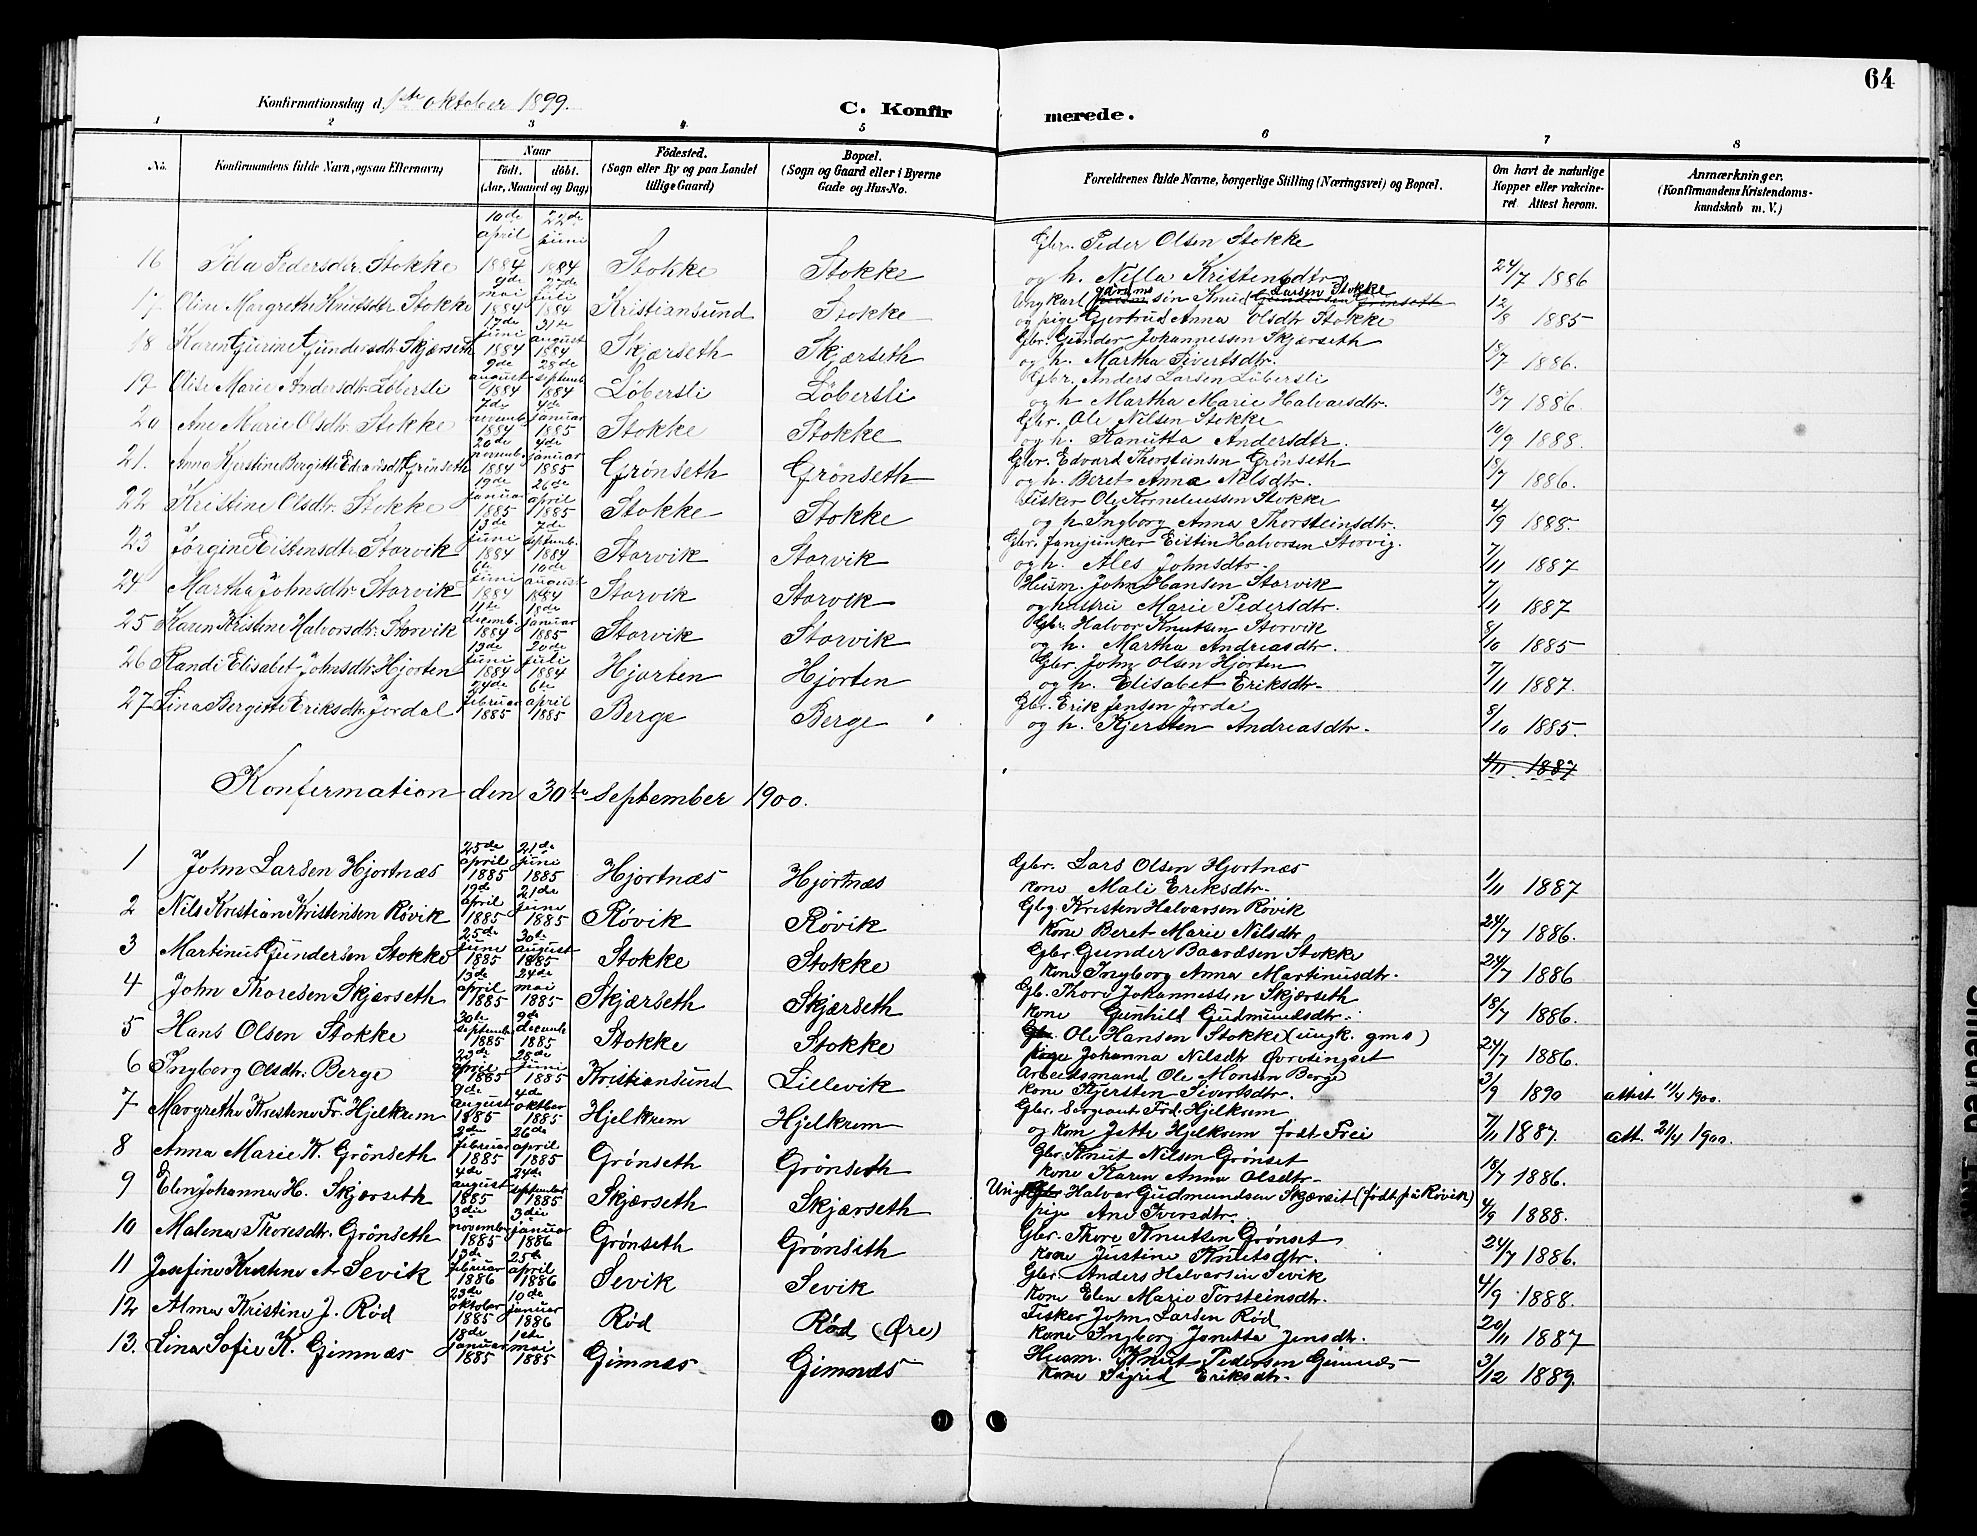 64
Konfirmationsdag d. 1ste oktober 1899.
C. Konfirmerede.
1 2 3 4 5 6 7 8
No. | Konfirmandens fulde Navn, ogsaa Efternavn) | Naar født. døbt. (Aar, Maaned og Dag) | Fødested. (Sogn eller By og paa Landet tillige Gaard) | Bopæl. (Sogn og Gaard eller i Byerne Gade og Hus-No. | Forældrenes fulde Navne, borgerlige Stilling (Næringsvei) og Bopæl. | Om havt de naturlige Kopper eller vakcineret. Attest herom. | Anmærkninger. (Konfirmandens Kristendomskundskab m. V.)
16 Ida Pedersdtr. Stokke | 10de april 1884 | 22de juni 1884 | Stokke | Stokke | Gbr. Peder Olsen Stokke og h. Nilla Kristensdtr. | 24/7 1886
17 Oline Margrethe Knutsdtr Stokke | 9de mai 1884 | 27de juli 1884 | Kristiansund | Stokke | Ungkarl Knud Larsen Stokke og pige Gjertrud Anna Olsdtr Stokke | 12/8 1885
18 Karen Gurine Gundersdtr Skjærseth | 17de juni 1884 | 31te august 1884 | Skjærseth | Skjærseth | Gbr. Gunder Johannessen Skjærseth og h. Martha Sivertsdtr. | 18/7 1886.
19 Olise Marie Andersdtr Løbersli | 9de august 1884 | 28de septemb. 1884 | Løbersli | Løbersli | Gbr. Anders Larsen Løbersli og h Martha Marie Halvarsdtr. | 18/7 1886
20 Ane Marie Olsdtr. Stokke | 7de novemb. 1884 | 4de januar 1885 | Stokke | Stokke | Gbr. Ole Nilsen Stokke og h. Kanutta Andersdtr. | 10/9 1888.
21. Anna Kjerstine Bergitte Edvardsdtr Grönseth | 20de novemb. 1884 | 4de januar 1885 | Grönseth | Grönseth | Gbr. Edvard Thorsteinsen Grönseth og h. Beret Anna Nilsdtr. | 18/7 1886.
22 Kristine Olsdtr. Stokke | 19de januar 1885 | 26de april 1885 | Stokke | Stokke | Fisker Ole Korneliussen Stokke og h Ingborg Anna Thorsteinsdtr. | 4/9 1888.
23 Jörgine Eistensdtr. Storvik | 13de juni 1884 | 7de septemb. 1884 | Storvik | Storvik | Gbr. fanejunker Eistin Halvorsen Storvig. og h. Ales Johnsdtr. | 7/11 1887
24 Martha Johnsdtr Storvik | 6te juni 1884 | 10de august 1884 | Storvik | Storvik | Husm. John Hansen Storvik og hustru Marie Pedersdtr. | 7/11 1887
25 Karen Kristine Halvorsdtr. Storvik | 11te decemb. 1884 | 18de januar 1885 | Storvik | Storvik | Gbr. Halvor Knutsen Storvik og h. Martha Andreasdtr. | 8/10 1885
26 Randi Elisabet Johnsdtr Hjorten | 13de juni 1884 | 20de juli 1884 | Hjorten | Hjorten | Gbr. John Olsen Hjorten og h. Elisabet Eriksdtr. | 7/11 1887.
27 Lina Bergitte Eriksdtr. Jordal | 24de februar 1885 | 6te april 1885 | Berge | Berge | Gbr. Erik Jensen Jordal og h. Kjersten Andreasdtr. | 8/10 1885.
1/11 1887
Konfirmation den 30te september 1900.
1 John Larsen Hjortnæs | 25de april 1885 | 21de juni 1885 | Hjortnæs | Hjortnæs | Gbr. Lars Olsen Hjortnæs kone Mali Eriksdtr. | 1/11 1887
2 Nils Kristian Kristensen Røvik | 19de april 1885 | 21de june 1885 | Røvik | Røvik | Gbg Kristen Halvarsen Røvik kone Beret Marie Nilsdtr | 24/7 1886.
3 Martinus Gundersen Stokke | 25de june 1885 | 30te august 1885 | Stokke | Stokke | Gbr Gunder Baardsen Stokke kone Ingborg Anna Martinusdtr. | 24/7 1886
4 John Thoresen Skjærseth | 13de april 1885 | 24de mai 1885 | Skjærseth | Skjærseth | Gb. Thore Johannessen Skjærseth kone Gunhild Gudmundsdtr. | 18/7 1886.
5 Hans Olsen Stokke | 30te septemb 1885 | 9de decemb 1885 | Stokke | Stokke | Gbr. Ole Hansen Stokke (ungk. gms) pige Johanna Nilsdtr Øvretingset | 24/7 1886.
6 Ingborg Olsdtr. Berge | 23de april 1885 | 28de juni 1885 | Kristiansund | Lillevik | Arbeidsmand Ole Monsen Berge kone Kjersten Sivertsdtr. | 3/9 1890 | attest 11/4 1900.
7 Margrethe Kristine Fr. Hjelkrem | 9de august 1885 | 4de oktober 1885 | Hjelkrem | Hjelkrem | Gbr. Sergeant Frd. Hjelkrem og kone Jette Hjelkrem født Frei | 7/11 1887. | att. 21/4 1900.
8 Anna Marie K. Grönseth | 2de februar 1885 | 26de april 1885 | Grönseth | Grönseth | Gbr. Knut Nilsen Grönset kone Karen Anna Olsdtr. | 18/7 1886.
9 Elen Johanna H. Skjærseth | 4de august 1885 | 24de september 1885 | Skjærseth | Skjærseth | Ungk. Gbr Halvar Gudmundsen Skjærset (født på Røvik) pige Ane Iversdtr. | 4/9 1888.
10 Malena Thoresdtr. Grönseth | 3die novemb 1885 | 3die januar 1886 | Grönseth | Grönseth | Gbr. Thore Knutsen Grönset kone Justine Knutsdtr. | 24/7 1886.
11 Josefine Kristine A Sevik | 13de februar 1886 | 25de april 1886 | Sevik | Sevik | Gbr. Anders Halvarsen Sevik kone Elen Marie Torsteinsdtr. | 4/9 1888.
12 Alma Kristine J. Rød | 23de oktober 1885 | 10de januar 1886 | Rød | Rød (Øre) | Fisker John Larsen Rød kone Ingborg Janetta Jensdtr. | 20/11 1887
13. Lina Sofie K. Gimnæs | 18de januar 1885 | 1ste mai 1885 | Gimnæs | Gimnæs | Husm. Knut Pedersen Gimnæs kone Sigrid Eriksdtr. | 3/12 1889.